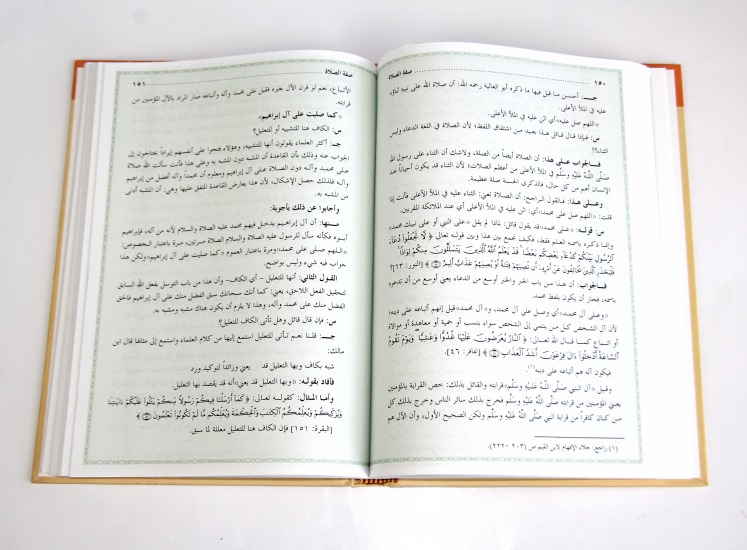 ١٥٠ صفة الصلاة
جـــ: أحسن ما قيل فيها ما ذكره أبو العالية رحمه الله: أن صلاة الله على نبيه ثناؤه
عليه في الملأ الأعلى.
«اللهم صل عليه» أي اثن عليه في الملأ الأعلى.
س: فإذا قال قائل هذا بعيد من اشتقاق اللفظ، لأن الصلاة في اللغة الدعاء وليس
الثناء؟!
فــالجواب عــلى هذا: أن الصلاة أيضاً من الصلة، ولاشك أن الثناء على رسول الله
صَلَّى اللَّهُ عَلَيْهِ وَسَلَّم في الملأ الأعلى من أعظم الصلات؛ لأن الثناء قد يكون أحياناً عند
الإنسان أهم من كل حال، فالذكرى الحسنة صلة عظيمة.
وعــلى هذا: فـالقول الراجح: أن الصلاة تعني: الثناء عليه في الملأ الأعلى فأنت إذا
قلت: «اللهم صل على محمد» أي: اثن عليه في الملأ الأعلى أي عند الملائكة المقربين.
س: قولـه: «على محمد» قد يقول قائل: لماذا لم يقل «على النبي أو على نبيك محمد»
وإنما ذكره باسمه العلم فقط، فكيف نجمع بين هذا وبين قوله تعالى ﴿ لَّا تَجْعَلُوا دُعَآءَ
ٱلرَّسُولِ بَيْنَكُمْ كَدُعَآءِ بَعْضِكُم بَعْضًا ۚ قَدْ يَعْلَمُ ٱللَّهُ ٱلَّذِينَ يَتَسَلَّلُونَ مِنكُمْ لِوَاذًا ۚ
فَلْيَحْذَرِ ٱلَّذِينَ يُخَالِفُونَ عَنْ أَمْرِهِۦٓ أَن تُصِيبَهُمْ فِتْنَةٌ أَوْ يُصِيبَهُمْ عَذَابٌ أَلِيمٌ ﴾ [النور: ٦٣]؟
فـالجواب: أن هـذا من باب الخبر والخبر أوسع من الدعاء يعني أوسع من أن تدعوه
باسمه، فجاز أن يكون بلفظ محمد.
«وعـلى آل محمد» أي وصل على آل محمد، و«آل محمد» قيل إنهم أتباعه على دينه؛
لأن آل الشخص كـل مـن ينتمي إلى الشخص سواء بنسب أو حمية أو معاهدة أو موالاة
أو اتبـاع كمــا قـال الله تعــالى: ﴿ ٱلنَّارُ يُعْرَضُونَ عَلَيْهَا غُدُوًّا وَعَشِيًّا ۖ وَيَوْمَ تَقُومُ
ٱلسَّاعَةُ أَدْخِلُوٓا ءَالَ فِرْعَوْنَ أَشَدَّ ٱلْعَذَابِ ﴾ [غافر: ٤٦].
فيكون آله هم أتباعه على دينه(١)
وقيل «آل النبي صَلَّى اللَّهُ عَلَيْهِ وَسَلَّم» قرابته والقائل بذلك: خص القرابة بالمؤمنين
يعني المؤمنين من قرابته صَلَّى اللَّهُ عَلَيْهِ وَسَلَّم فخرج بذلك سائر الناس وخرج بذلك كل
من كان كافراً من قرابة النبي صَلَّى اللَّهُ عَلَيْهِ وَسَلَّم ولكن الصحيح الأول، وأن الآل هم
(١) راجع: جلاء الإفهام لابن القيم ص (٢٠٣ – ٢٢٢).
صفة الصلاة ١٥١
الأتباع، نعم لو قرن الآل بغيره فقيل على محمد وآله وأتباعه صار المراد بالآل المؤمنين من
قرابته.
«كما صليت على آل إبراهيم»
س: الكاف هنا للتشبيه أو للتعليل؟
جـ: أكثر العلماء يقولون أنها للتشبيه، وهؤلاء فتحوا على أنفسهم إيراداً يحتاجون إلى
الجواب عنه وذلك بأن القاعدة أن المشبه دون المشبه به وعلى هذا فأنت سألت الله صلاة
عـلى محمـد وآلـه دون الصلاة عـلى آل إبراهيم ومعلوم أن محمداً وآله أفضل من إبراهيم
وآلـه فلذلك حصل الإشكال، لأن هذا يعارض القاعدة المتفق عليها وهي: أن المشبه أدنى
من المشبه به.
وأجابوا عن ذلك بأجوبة:
مــنها: أن آل إبراهيـم يدخل فيهم محمد عليه الصلاة والسلام لأنه من آله، فإبراهيم
أبـوه فكأنه سأل للرسول عليه الصلاة والسلام الصلاة مـرتين، مرة باعتبار الخصوص:
«اللـهم صلى على محمد» ومرة باعتبار العموم «كما صليت على آل إبراهيم» ولكن هذا
جواب فيه شيء وليس بواضح.
القـول الثاني: أنها للتعليل - أي الكاف - وأن هذا من باب التوسل بفعل الله السابق
لتحقيق الفعل اللاحق، يعني: كما أنك سبحانك سبق الفضل منك على آل إبراهيم فالحق
الفضل منك على محمد وآله، وهذا لا يلزم أن يكون هناك مشبه ومشبه به.
س: فإن قال قائل وهل تأتى الكاف للتعليل؟
جـــ: قلنا نعـم تـأتى للتعليل استمع إليها من كلام العلماء، واستمع إلى مثالها قال ابن
مالك:
شبه بكاف وبها التعليل قد يعني وزائداً لتوكيد ورد
فأفاد بقوله: «وبها التعليل قد يعني» أنه قد يقصد بها التعليل.
وأما المثال: كقوله تعالى: ﴿ كَمَآ أَرْسَلْنَا فِيكُمْ رَسُولًا مِّنكُمْ يَتْلُوا عَلَيْكُمْ ءَايَـٰتِنَا
وَيُزَكِّيكُمْ وَيُعَلِّمُكُمُ ٱلْكِتَـٰبَ وَٱلْحِكْمَةَ وَيُعَلِّمُكُم مَّا لَمْ تَكُونُوا تَعْلَمُونَ ﴾
[البقرة: ١٥١] فإن الكاف هنا للتعليل معللة لما سبق.